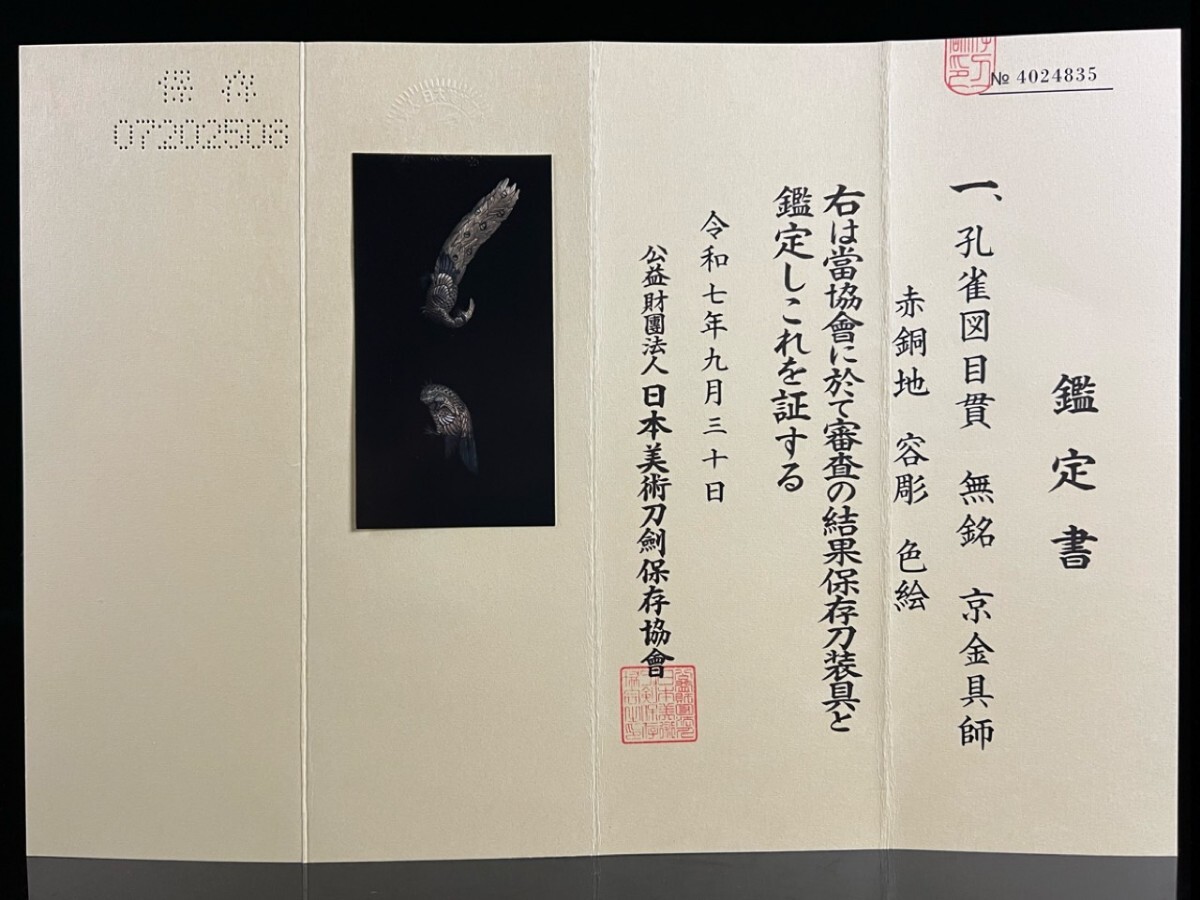 № 4024835
鑑定書
一、孔雀図目貫 無銘 京金具師
赤銅地 容彫 色絵
右は當協會に於て審査の結果保存刀装具と
鑑定しこれを証する
令和七年九月三十日
公益財團法人日本美術刀劍保存協會
保存
07202508